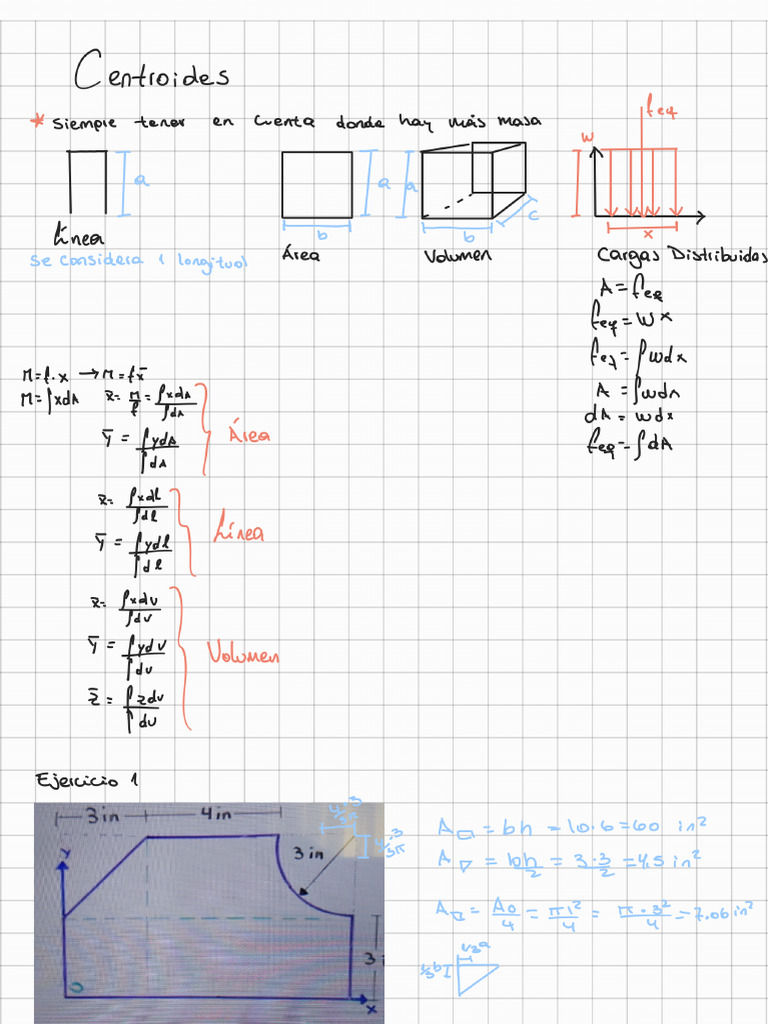 Centroides
* Siempre tener en cuenta donde hay más masa
feq
W
a
a
b
a
b
c
x
Línea
Se considera 1 longitud
Área
Volumen
Cargas Distribuidas
A = feq
feq = W x
feq = ∫wdx
A = ∫wdx
dA = wdx
feq = ∫dA
M = f·x → M = fx̄
M = ∫xdA x̄ = M/f = ∫xdA/∫dA
ȳ = ∫ydA/∫dA
Área
x̄ = ∫xdl/∫dl
ȳ = ∫ydl/∫dl
Línea
x̄ = ∫xdv/∫dv
ȳ = ∫ydv/∫dv
z̄ = ∫zdv/∫dv
Volumen
Ejercicio 1
3 in 4 in
4·3/3π
4·3/3π
3 in
Y
3 i
O
x
A▭ = bh = 10·6 = 60 in²
A▽ = bh/2 = 3·3/2 = 4.5 in²
A = Ao/4 = πr²/4 = π·3²/4 = 7.06 in²
1/3a
1/3b